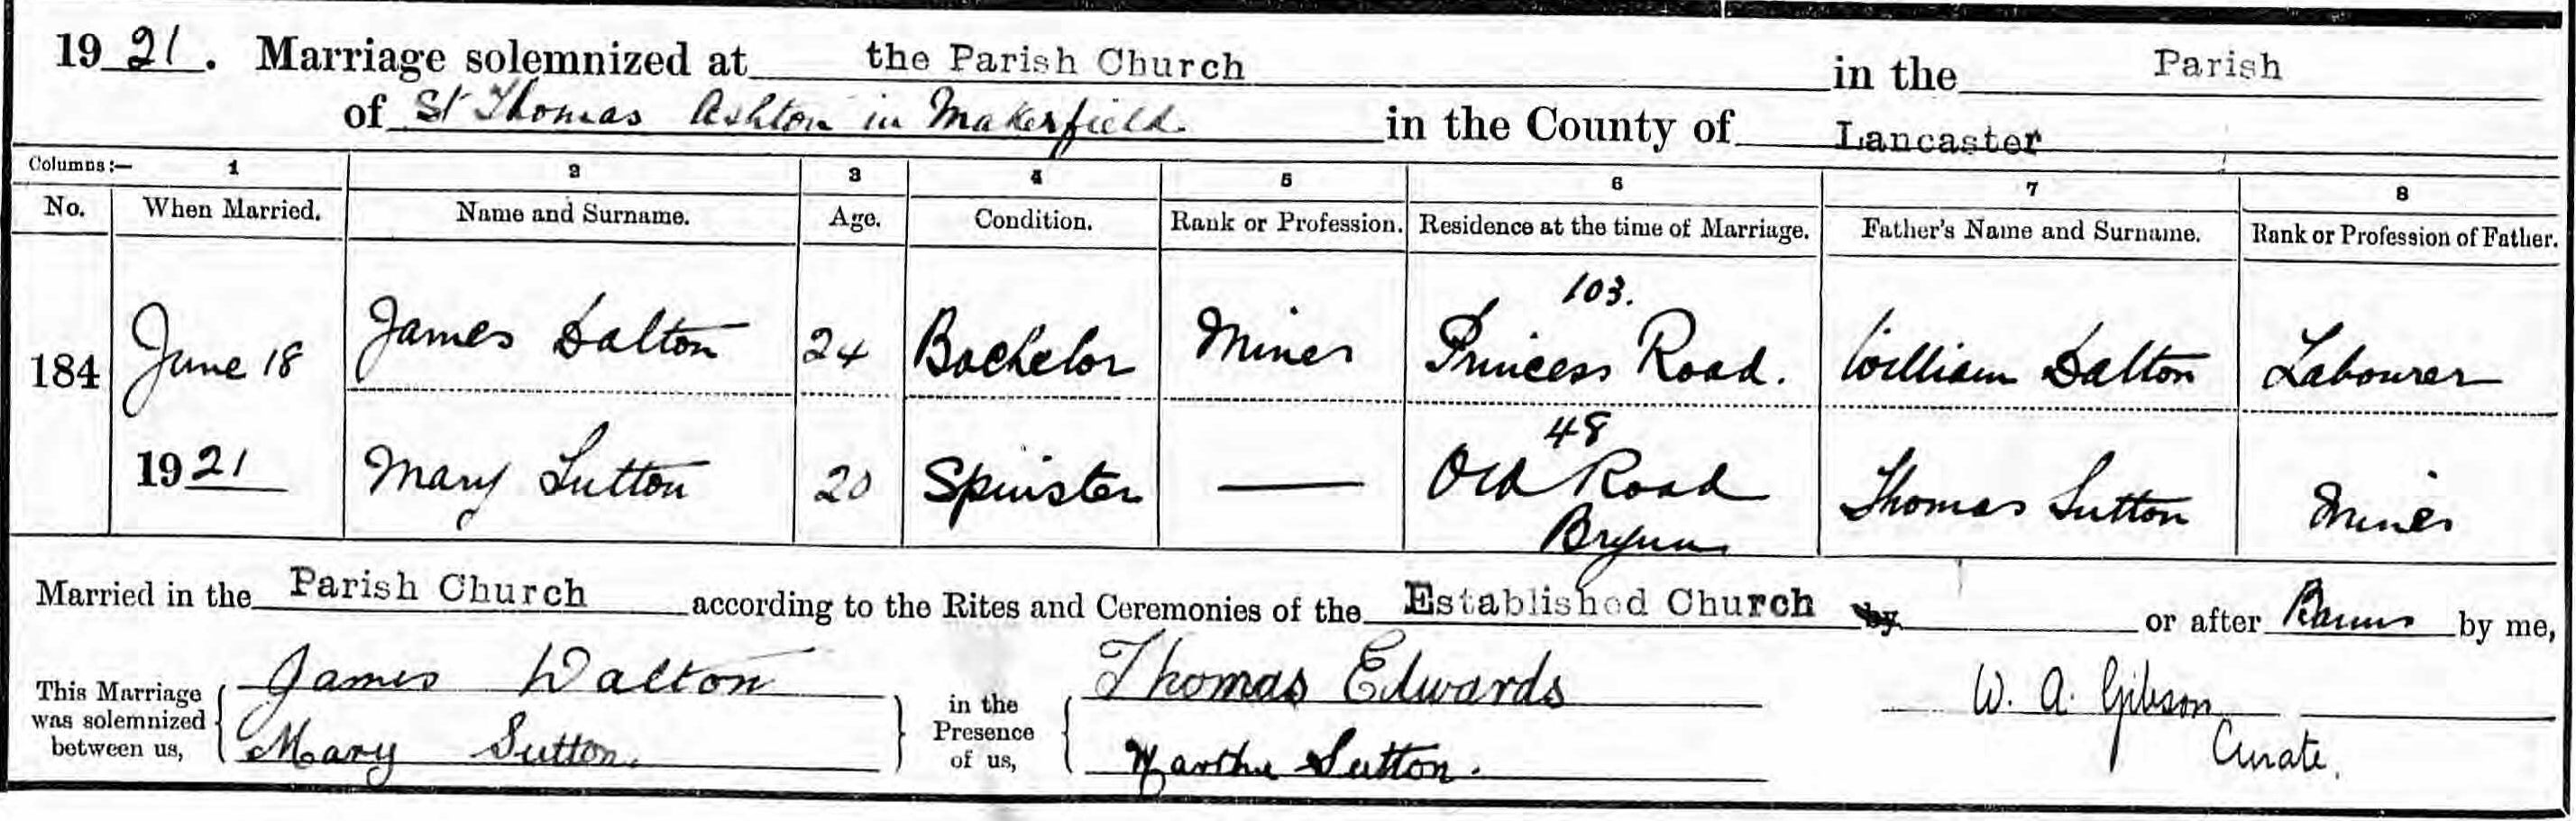 1921. Marriage solemnized at the Parish Church in the Parish
of St Thomas Ashton in Makerfield in the County of Lancaster
Columns:— 1 2 3 4 5 6 7 8
No. When Married. Name and Surname. Age. Condition. Rank or Profession. Residence at the time of Marriage. Father's Name and Surname. Rank or Profession of Father.
103.
184 June 18 James Dalton 24 Bachelor Miner Princess Road. William Dalton Labourer
48
1921 Mary Sutton 20 Spinster — Old Road Thomas Sutton Miner
Brynn
Married in the Parish Church according to the Rites and Ceremonies of the Established Church by or after Banns by me,
This Marriage was solemnized between us, James Dalton in the Presence of us, Thomas Edwards W. A. Gibson
Mary Sutton. Martha Sutton. Curate.